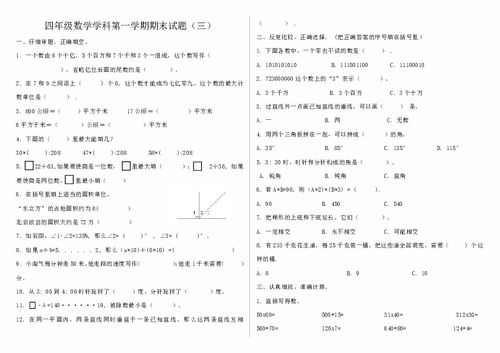 四年级数学学科第一学期期末试题（三）
一、仔细审题，正确填空。
1. 一个数由6个十亿，5个百万和7个千和3个一组成，这个数写作（
），省略亿位后面的尾数约是（ ）。
2. 在7和9之间添上（ ）个0，这个数才能成为七亿零九。这个数的最大计
数单位是（ ）.
3. 800公顷=（ ）平方千米 17公顷=（ ）平方米
6平方千米=（ ）公顷=（ ）平方米
4. 下面的（ ）里最大能填几？
36×( )<208 47×( )<208 58×( )<208
5. □22÷63,如果要使商是一位数，□里最大填（ ）；□2÷36,如果
要使商是两位数，□里最小填（ ）
6. 在括号里填上适当的面积单位。
“水立方”的占地面积约为6( )
北京故宫的面积大约是72万( )
7. 如右图，∠1=∠2=135%，那么∠2=( )°，∠3=( )°。
8. 如果a÷b=5......2，那么(a×10)÷(6×10)=( )
9. 小淘气每分钟走50米，他走路的速度写作( )，他走1千米需要( )
分。
10. 从3：00到4：00时针旋转了( )度，分针旋转了( )度。
11. □÷△=140······19，被除数最小是( )。
12. 在同一平面内，两条直线同时垂直于一条已知直线，那么这两条直线互相
( ).
二、反复比较，正确选择。(把正确答案的序号填在括号里)
1. 下面各数中，一个零也不读的数是( ).
A. 1010101010 B. 111001100 C. 11100010
2. 723600000这个数上的“3”表示( )。
A. 3个千万 B. 3个百万 C. 3个十万
3. 过直线外一点画已知直线的垂线，可以画( )条.
A. 一 B. 两 C. 无数
4. 用两个三角板拼在一起，可以拼成( )的角。
A. 35° B. 85° C. 135° D. 115°
5. 3：30时，时针和分针构成的角是( )。
A. 锐角 B. 钝角 C. 直角
6. 若A×B=90，则(A×2)×(B×3)=( ).
A. 90 B. 450 C. 540
7. 把梯形的上底和下底延长，它们( )。
A. 一定相交 B. 永不相交 C. 可能相交
8. 有233千克花生油，每25千克装一桶，把这些油全部装完，需要( )个这
样的桶.
A. 8 B. 9 C. 10
三、认真细致，准确计算。
1. 直接写得数。
50x60= 500*15= 31x40= 312x30=
560÷70= 120x7= 640÷80= 124*4=